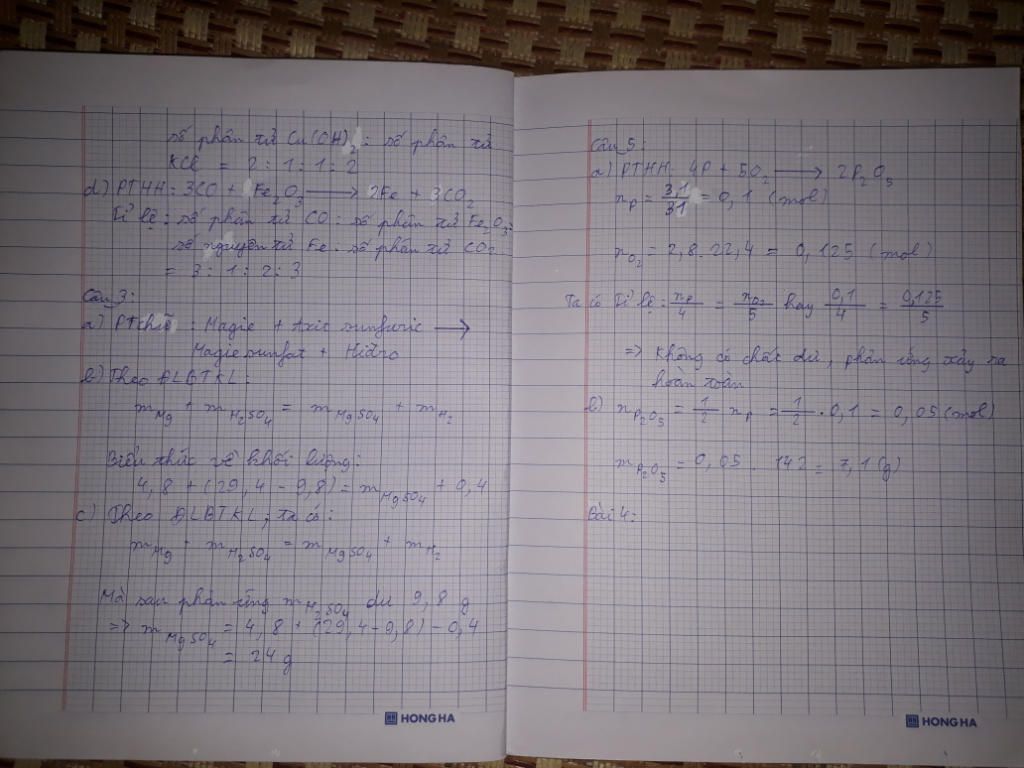 số phân tử Cu(OH)₂ : số phân tử
KCl = 2 : 1 : 1 : 2
d) PTHH: 3CO + Fe₂O₃ ⟶ 2Fe + 3CO₂
Tỉ lệ : số phân tử CO : số phân tử Fe₂O₃:
số nguyên tử Fe : số phân tử CO₂
= 3 : 1 : 2 : 3
Câu 3:
a) PT chữ : Magie + Axic sunfuric ⟶
Magie sunfat + Hiđro
b) Theo ĐLBTKL:
m_Mg + m_H₂SO₄ = m_MgSO₄ + m_H₂
Biểu thức về khối lượng:
4,8 + (29,4 - 9,8) = m_MgSO₄ + 0,4
c) Theo ĐLBTKL, ta có:
m_Mg + m_H₂SO₄ = m_MgSO₄ + m_H₂
Mà sau phản ứng m_H₂SO₄ dư 9,8 g
=> m_MgSO₄ = 4,8 + (29,4-9,8) - 0,4
= 24 g
HONG HA
Câu 5:
a) PTHH: 4P + 5O₂ ⟶ 2P₂O₅
n_P = 3,1/31 = 0,1 (mol)
n_O₂ = 2,8 . 22,4 = 0,125 (mol)
Ta có Tỉ lệ : n_P/4 = n_O₂/5 hay 0,1/4 = 0,125/5
=> Không có chất dư, phản ứng xảy ra
hoàn toàn
b) n_P₂O₅ = 1/2 n_P = 1/2 . 0,1 = 0,05 (mol)
m_P₂O₅ = 0,05 . 142 = 7,1 (g)
Bài 4:
HONG HA